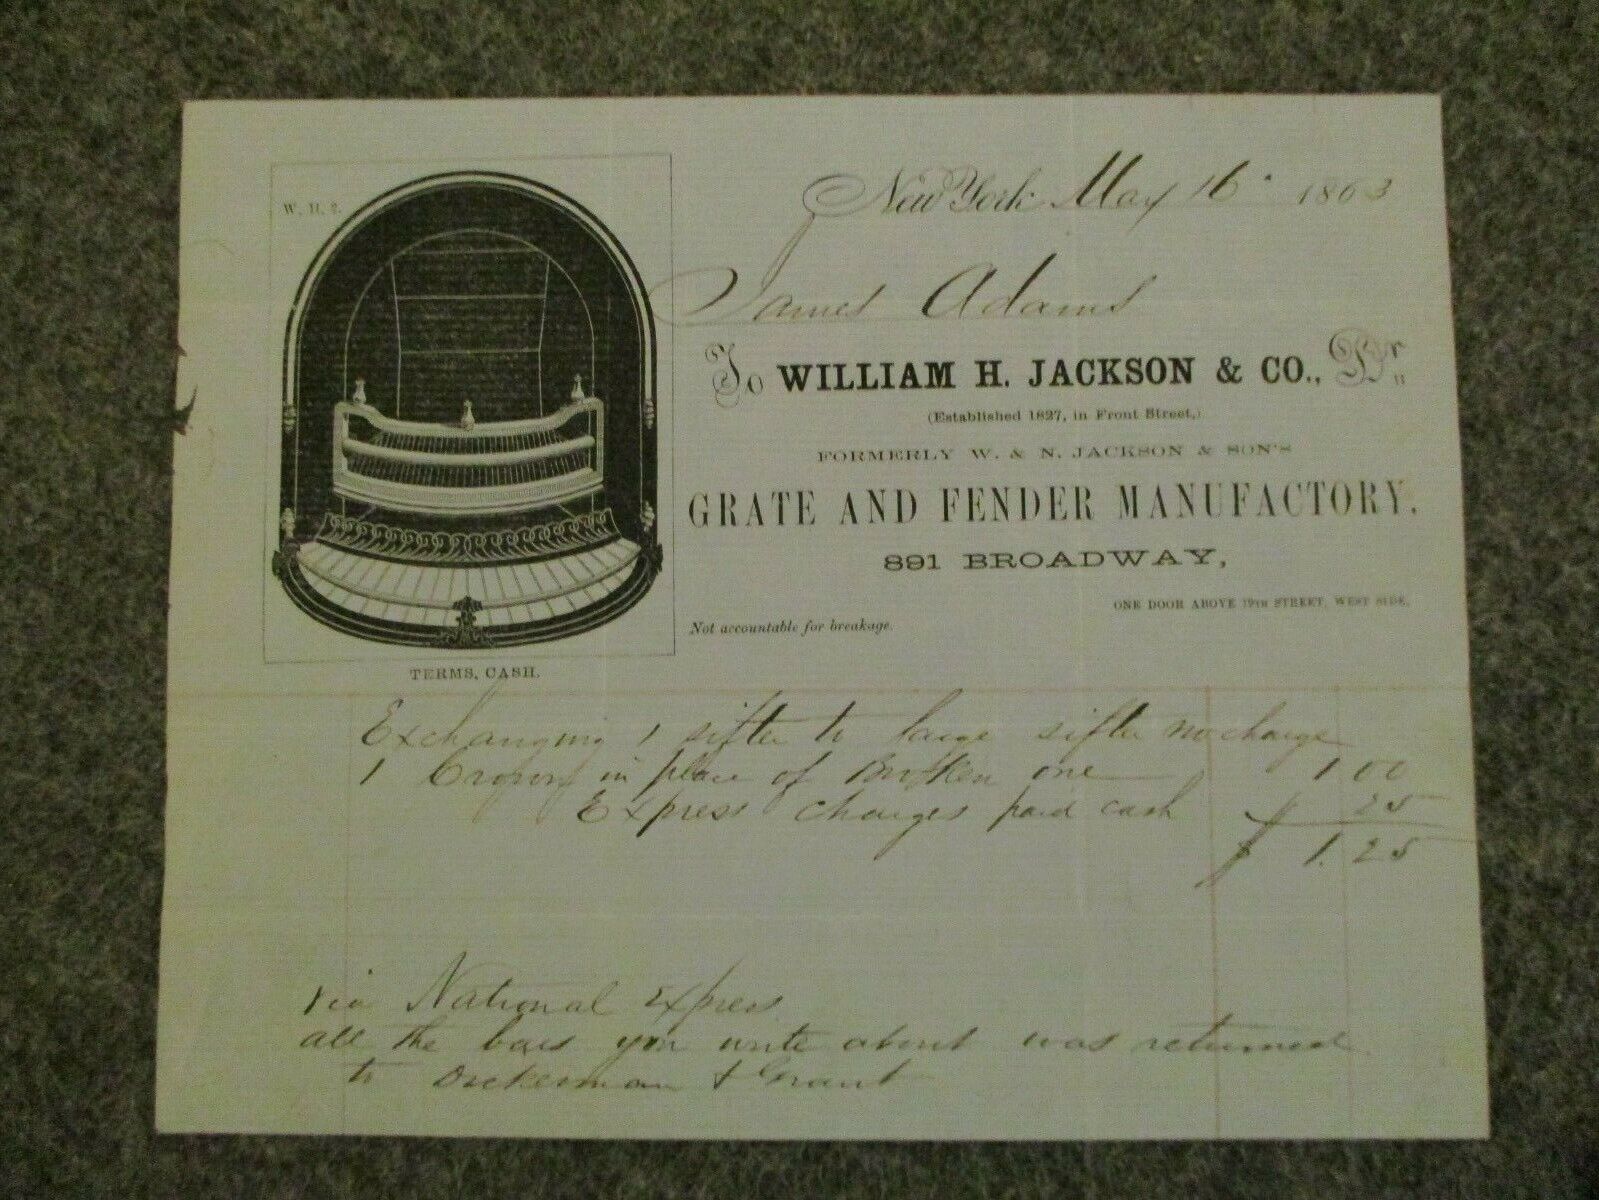 New York May 16 1863
W. H. 2.
James Adams
To WILLIAM H. JACKSON & CO., Dr.
(Established 1827, in Front Street,)
FORMERLY W. & N. JACKSON & SON'S
GRATE AND FENDER MANUFACTORY,
891 BROADWAY,
ONE DOOR ABOVE 19TH STREET, WEST SIDE.
Not accountable for breakage.
TERMS, CASH.
Exchanging 1 sifter to large sifter no charge
1 in place of Broken one 1 00
Express charges paid cash 25
$ 1.25
via National Express
all the bars you write about was returned
to Dickerman & Grant